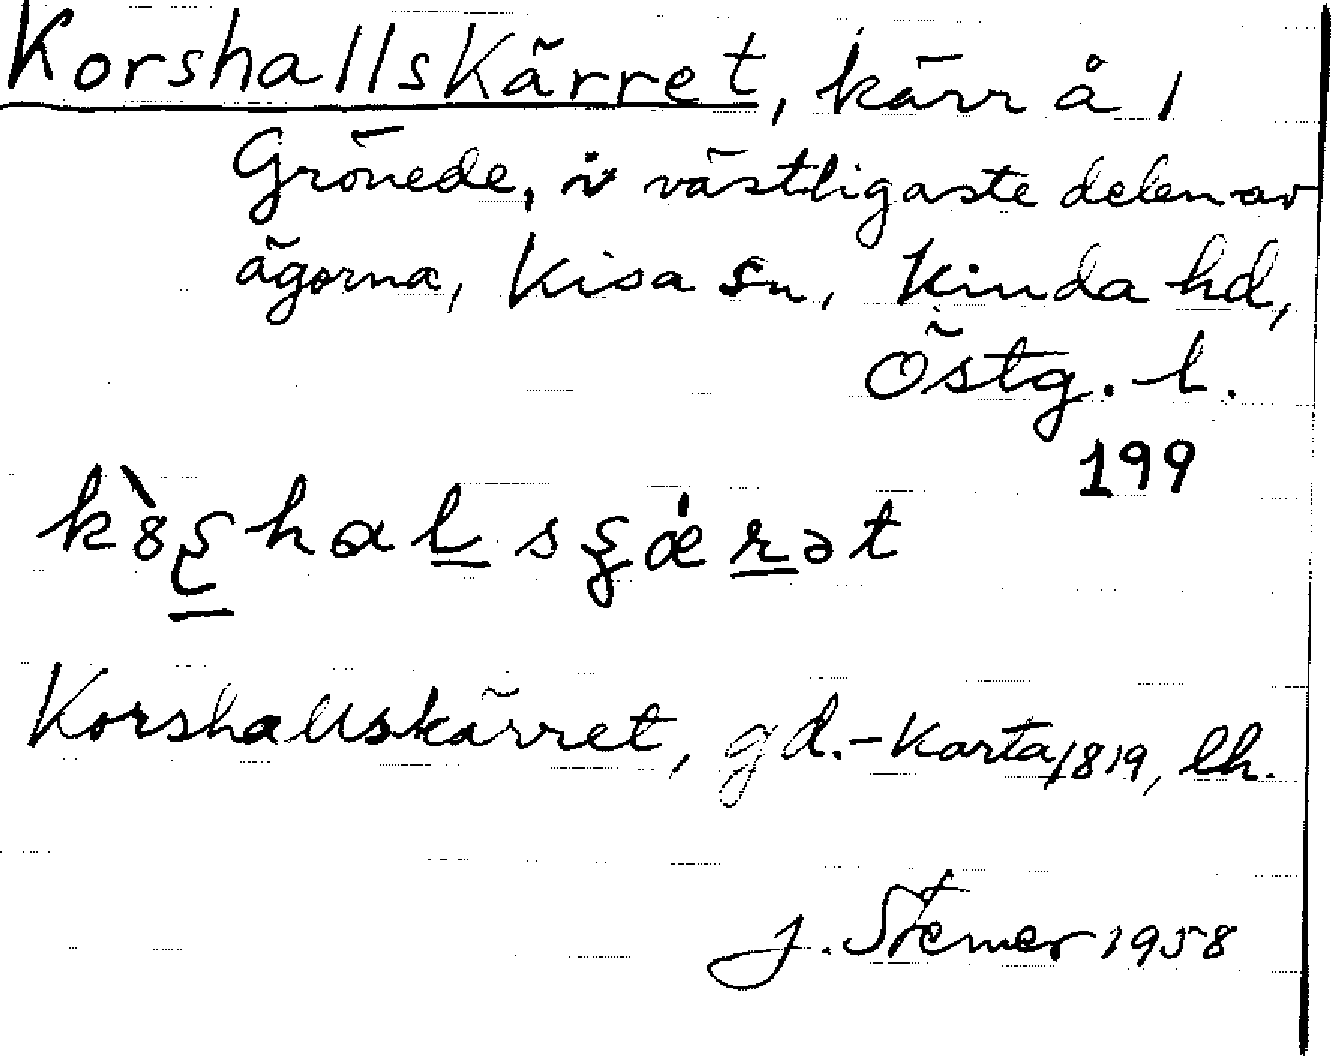 Korshallskärret, kärr å 1
Grönede, i västligaste delen av
ägorna, Kisa sn, Kinda hd,
Östg. l.
199
Korshallskärret, gd.-karta 1819, lh.
J. Sterner 1958